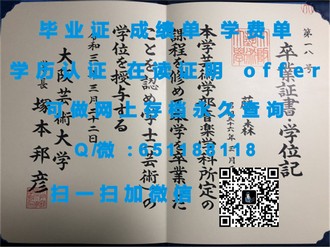 毕业证 成绩单 学费单
学历认证 在读证明 offer
可做网上存档永久查询
Q/微:651183118
扫一扫加微信
第一八号
卒業証書・学位記
藤森
本学芸術学部音楽学科所定の
課程を修めた学を卒業した
ことを認め学士(芸術)の
学位を授与する
令和三年三月二十二日
大阪芸術大学
学長 塚本邦彦